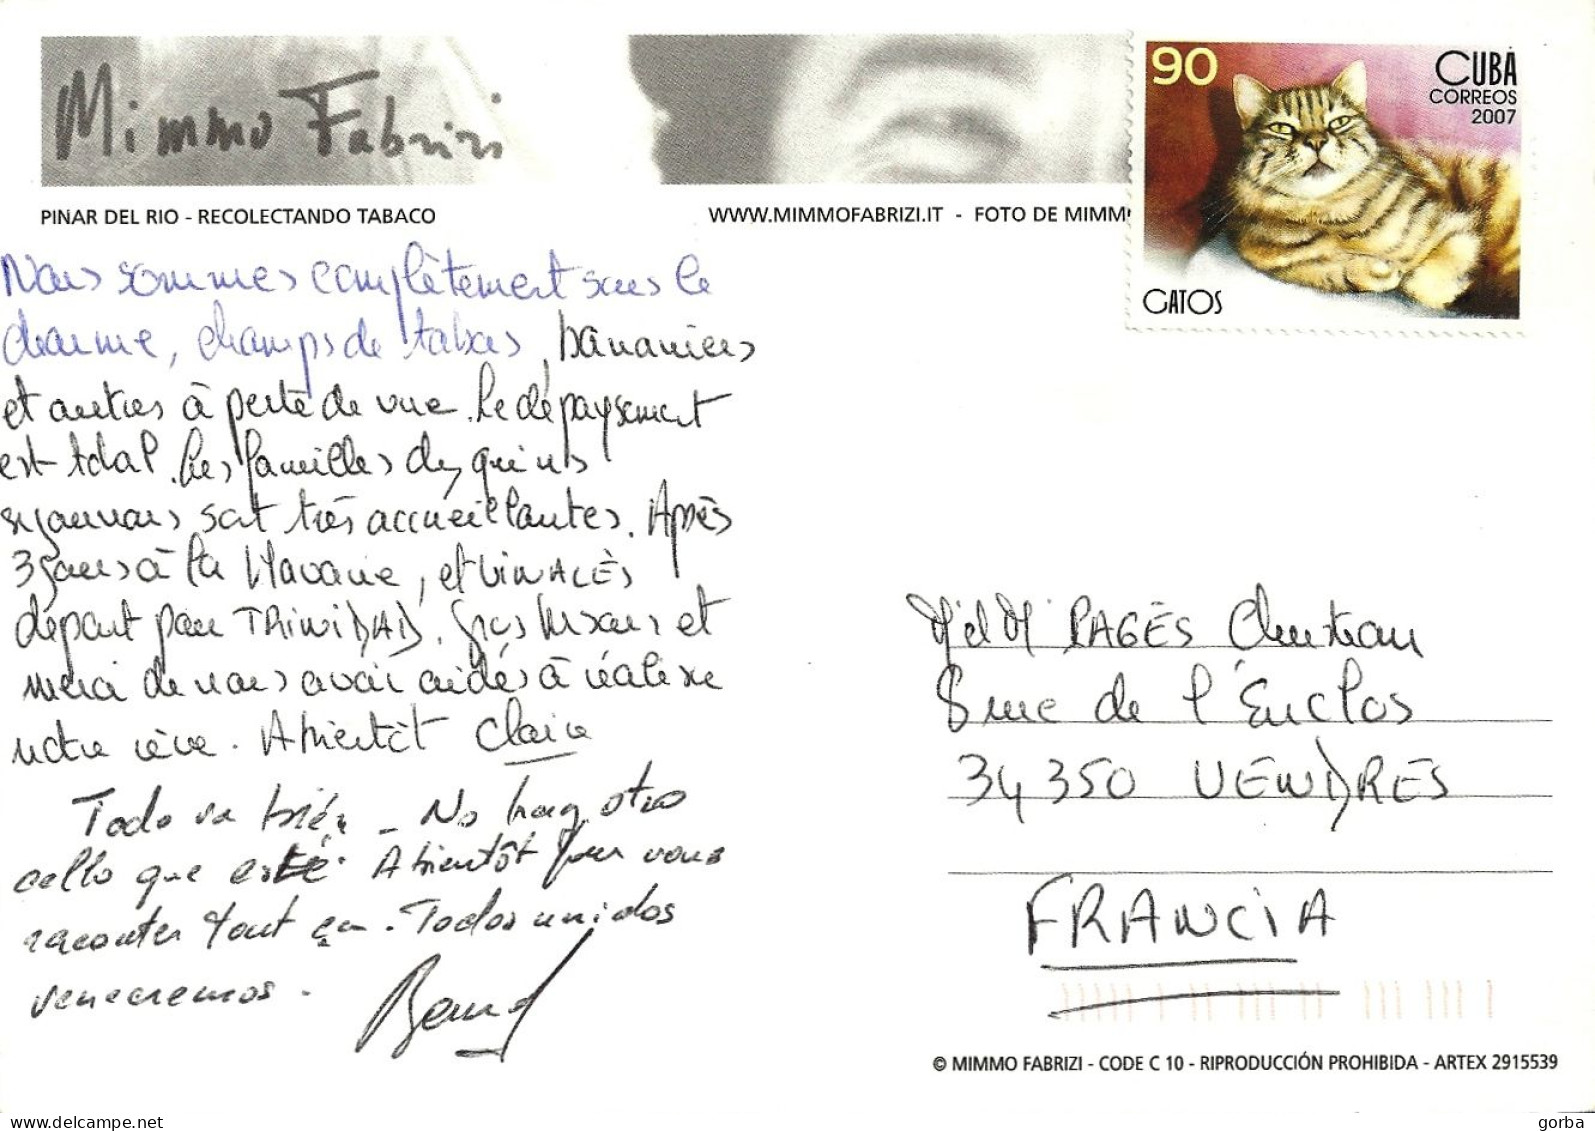 Mimmo Fabrizi
PINAR DEL RIO - RECOLECTANDO TABACO
WWW.MIMMOFABRIZI.IT - FOTO DE MIMM
90
CUBA
CORREOS
2007
GATOS
Nous sommes complètement sous le
charme, champs de tabacs, bananiers
et autres à perte de vue. Le dépaysement
est total. Les familles
séjournons sont très accueillantes. Après
3 jours à la Havane, et VINALÈS
départ pour TRINIDAD. Gros bisous et
merci de nous avoir aidés à réaliser
notre rêve. A bientôt Claire
Todo va bién - No hay otro
cello que esté. A bientôt pour vous
raconter tout ça. Todos unidos
venceremos.
M et M PAGÈS Christian
8 rue de l'Enclos
34 350 VENDRES
FRANCIA
© MIMMO FABRIZI - CODE C 10 - RIPRODUCCIÓN PROHIBIDA - ARTEX 2915539
gorba